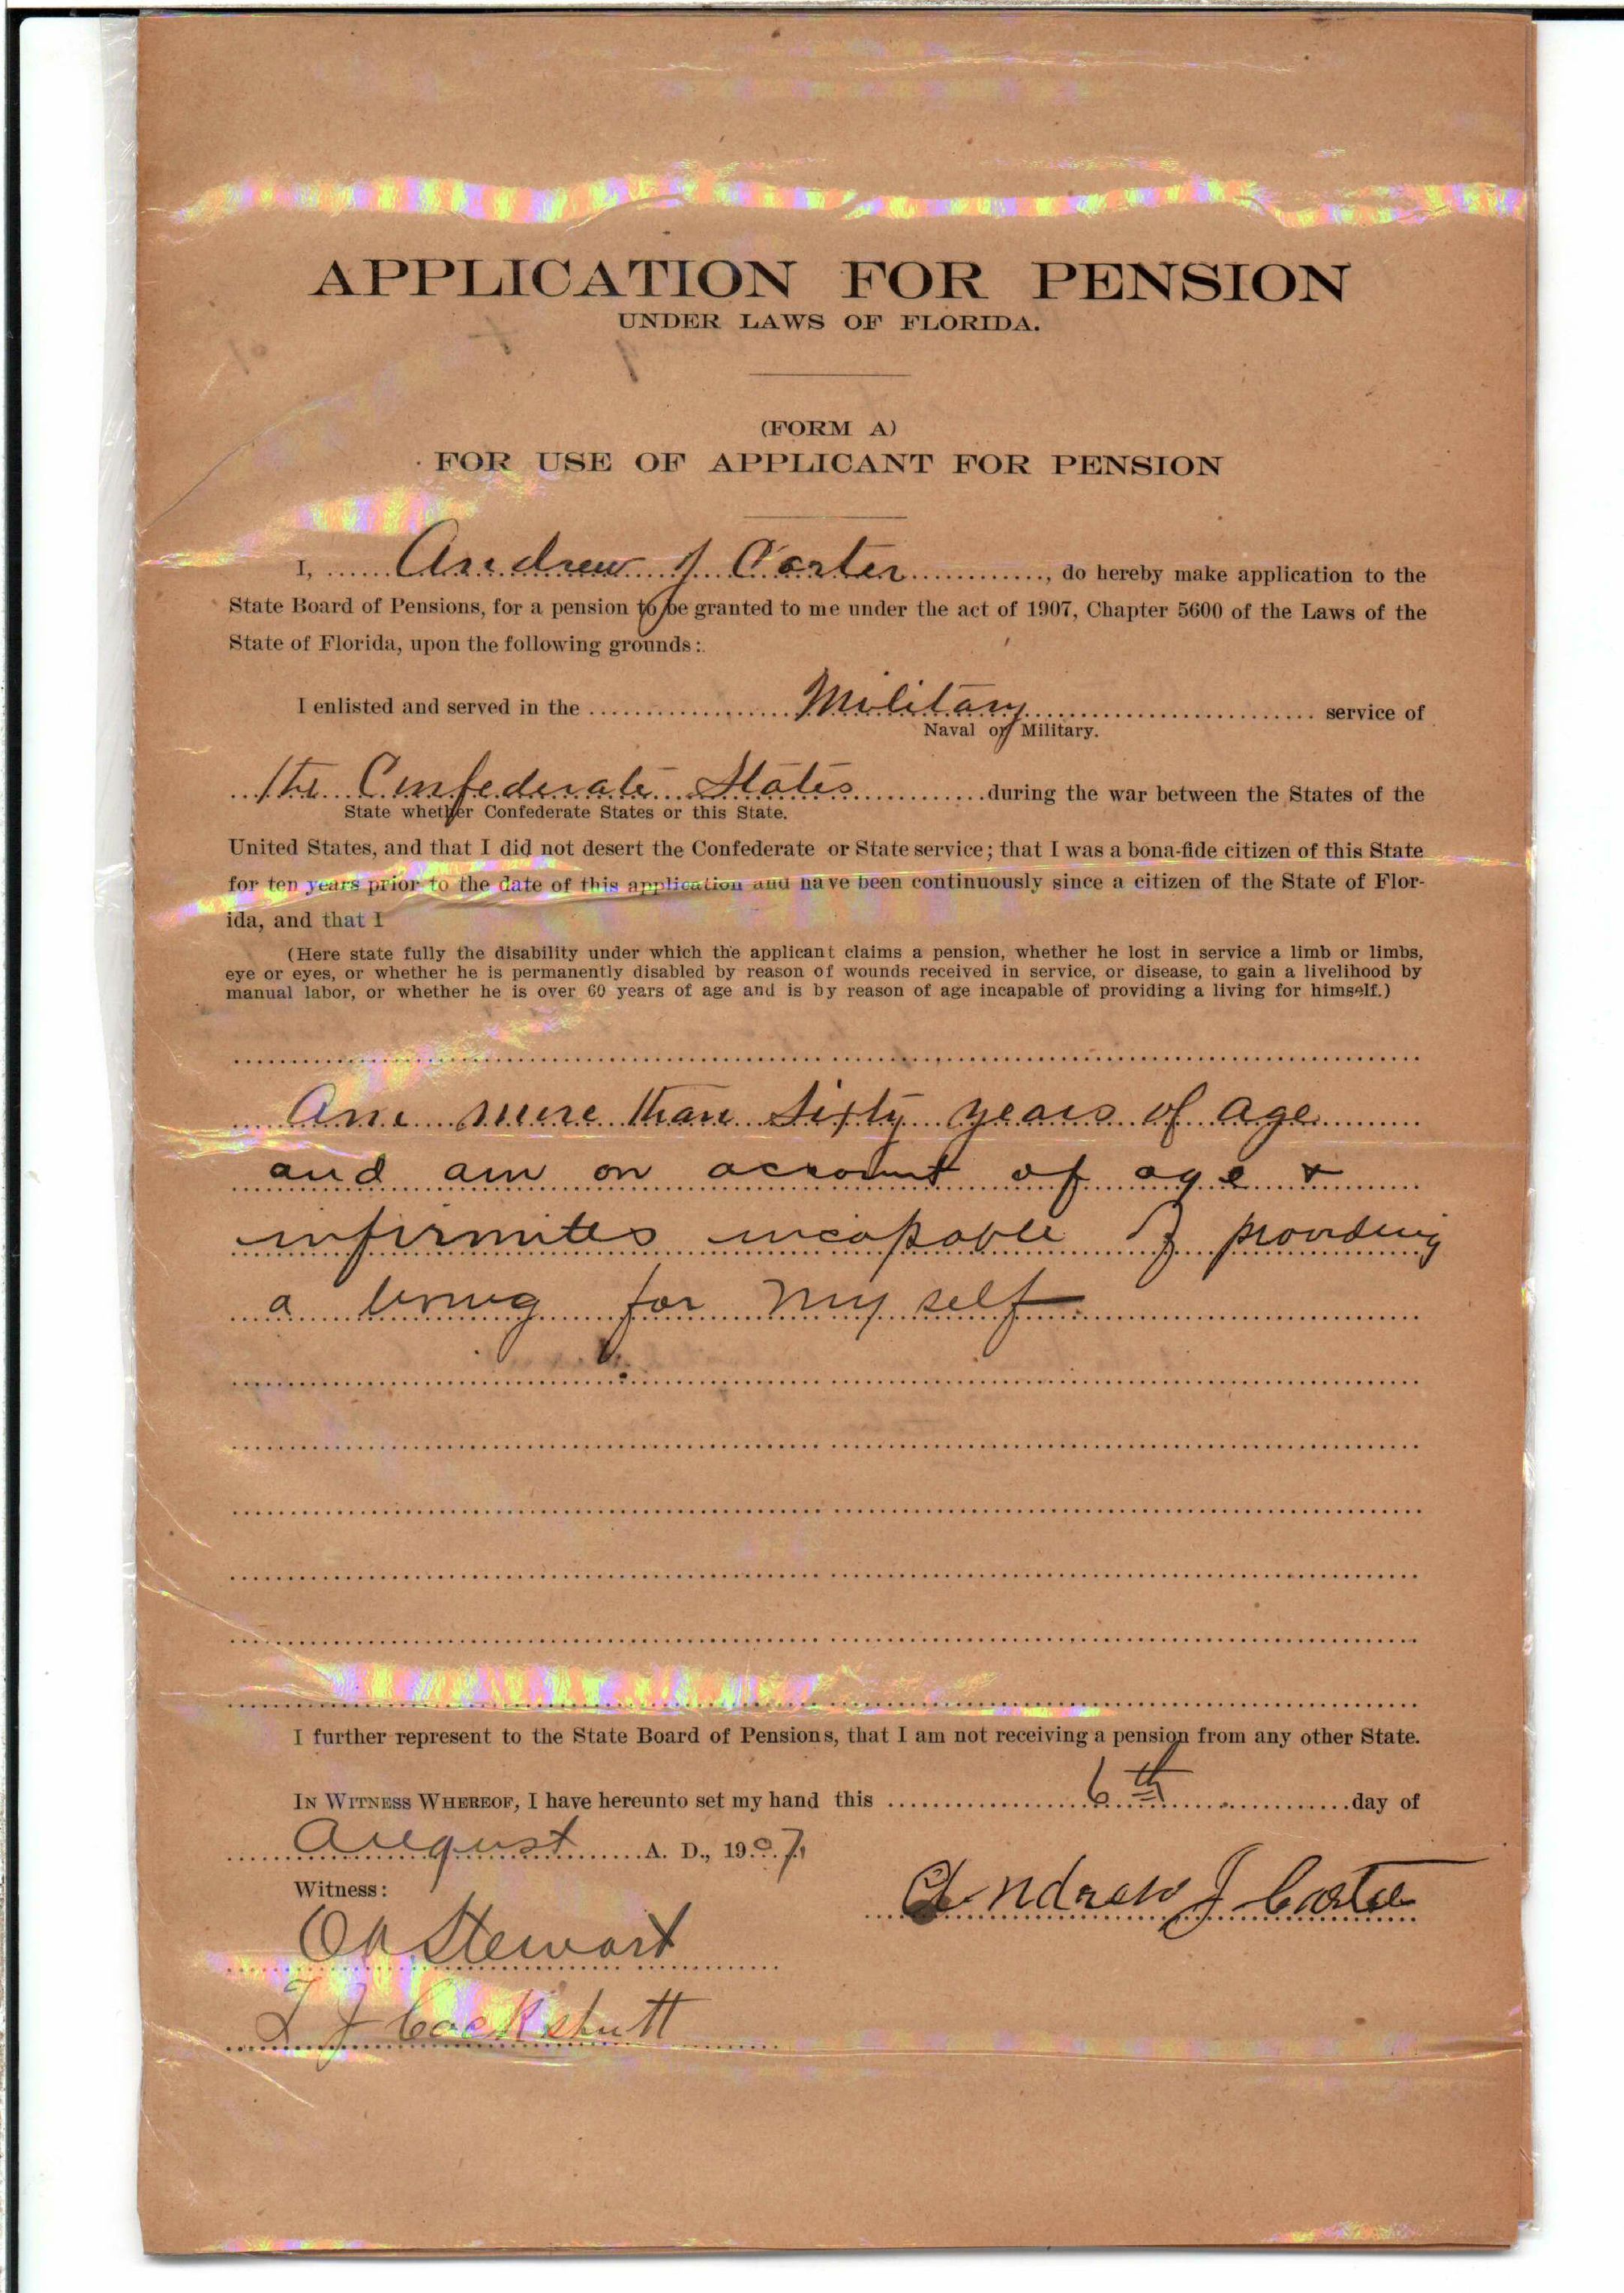 APPLICATION FOR PENSION
UNDER LAWS OF FLORIDA.
(FORM A)
FOR USE OF APPLICANT FOR PENSION
I, Andrew J Carter, do hereby make application to the
State Board of Pensions, for a pension to be granted to me under the act of 1907, Chapter 5600 of the Laws of the
State of Florida, upon the following grounds:
I enlisted and served in the Military service of
Naval or Military.
the Confederate States during the war between the States of the
State whether Confederate States or this State.
United States, and that I did not desert the Confederate or State service; that I was a bona-fide citizen of this State
for ten years prior to the date of this application and have been continuously since a citizen of the State of Flor-
ida, and that I
(Here state fully the disability under which the applicant claims a pension, whether he lost in service a limb or limbs,
eye or eyes, or whether he is permanently disabled by reason of wounds received in service, or disease, to gain a livelihood by
manual labor, or whether he is over 60 years of age and is by reason of age incapable of providing a living for himself.)
Am more than Sixty years of age
and am on account of age &
infirmites incapable of providing
a living for my self.
I further represent to the State Board of Pensions, that I am not receiving a pension from any other State.
IN WITNESS WHEREOF, I have hereunto set my hand this 6th day of
August A. D., 1907,
Witness:
Andrew J Carter
Stewart
J Cockshutt